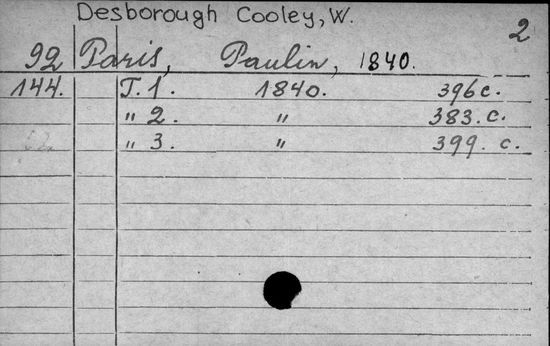 Desborough Cooley, W.
2
92 Paris, Paulin, 1840.
144. Т. 1. 1840. 396 с.
" 2. " 383. с.
" 3. " 399. с.